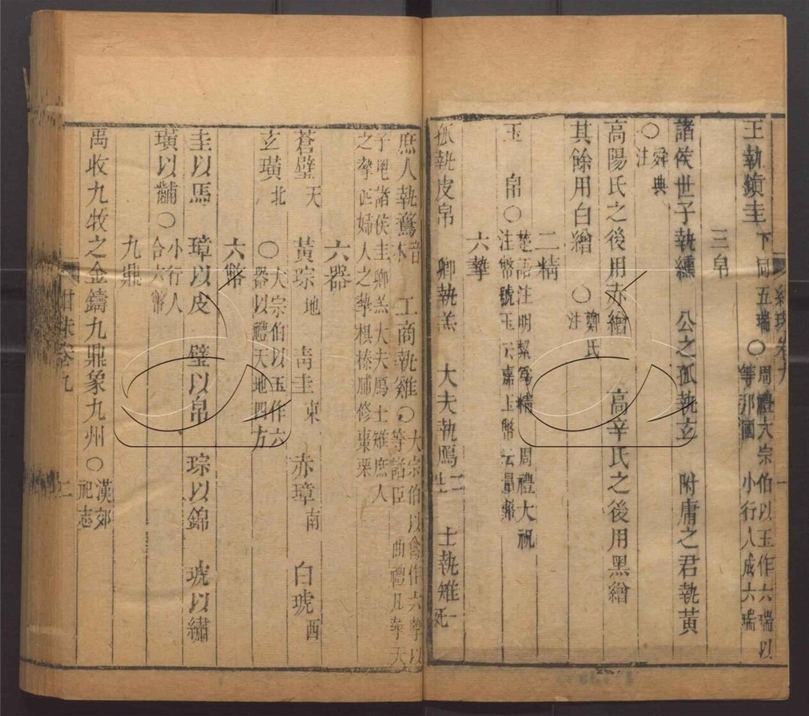 王執鎮圭下同五瑞○周禮大宗伯以玉作六瑞以等邦國 小行人成六瑞
三帛
諸侯世子執纁 公之孤執玄 附庸之君執黃
○舜典注
高陽氏之後用赤繒 高辛氏之後用黑繒
其餘用白繒 ○鄭氏注
二精
玉 帛○楚語注明絜為精 周禮大祝注幣號玉云嘉玉幣云量幣
六摯
孤執皮帛 卿執羔 大夫執鴈 士執雉
庶人執鶩 工商執雞○大宗伯以禽作六摯以等諸臣 曲禮凡摯天
子鬯諸侯圭卿羔大夫鴈士雉庶人之摯匹婦人之摯椇榛脯脩棗栗
六器
蒼璧天 黃琮地 青圭東 赤璋南 白琥西
玄璜北 ○大宗伯以玉作六器以禮天地四方
六幣
圭以馬 璋以皮 璧以帛 琮以錦 琥以繡
璜以黼○小行人合六幣
九鼎
禹收九牧之金鑄九鼎象九州○漢郊祀志